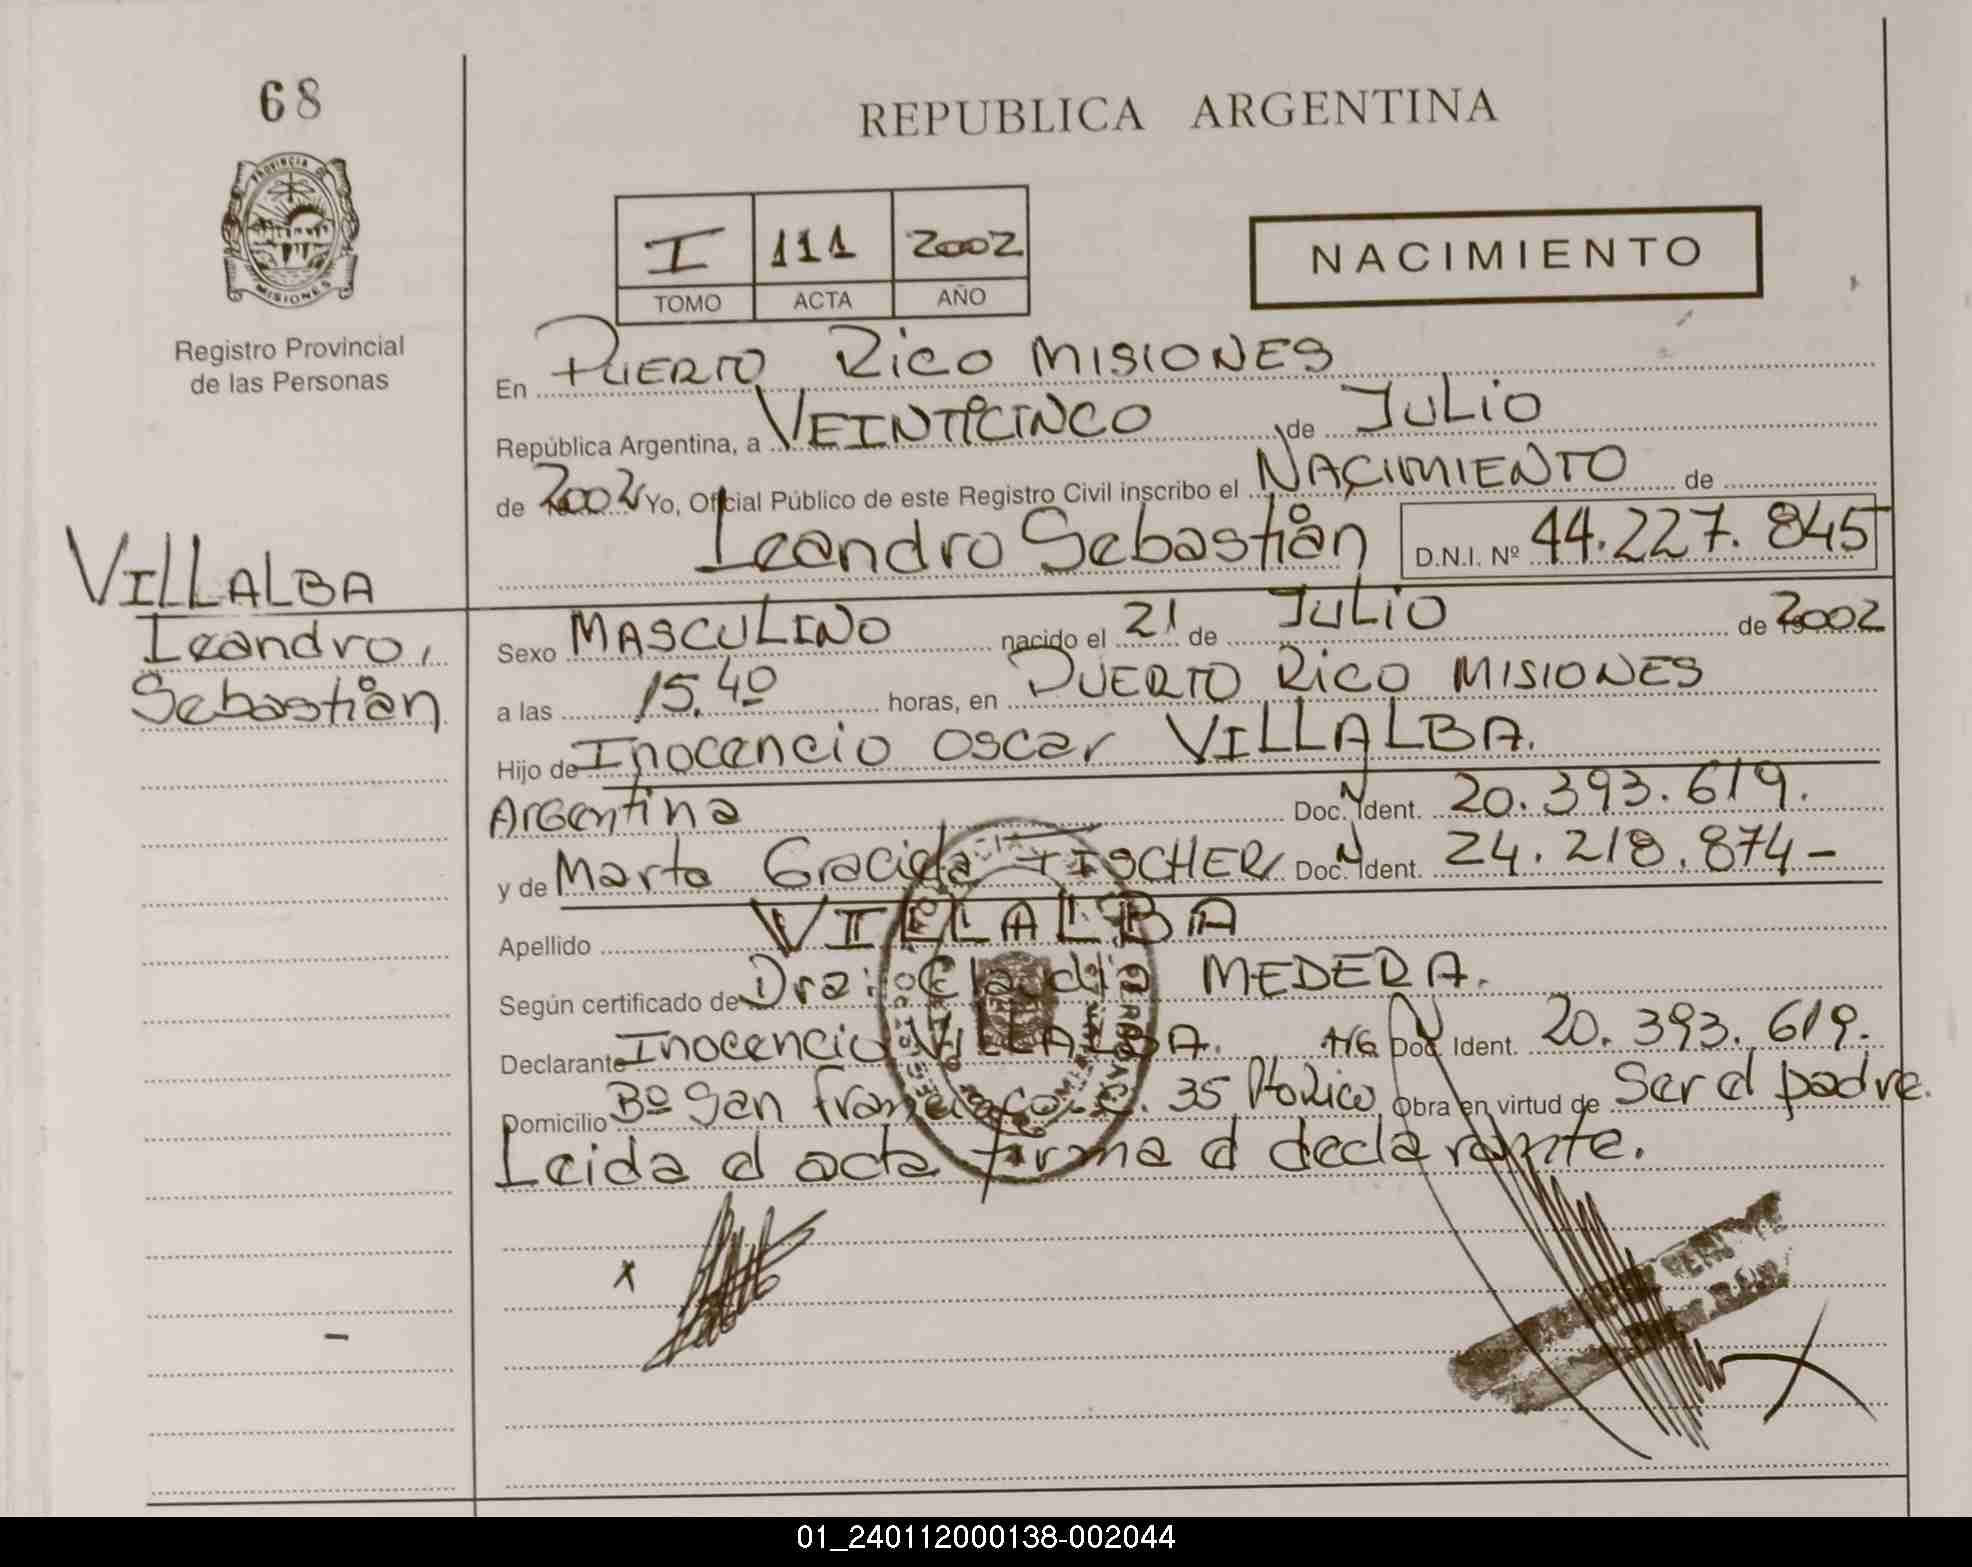 68
REPUBLICA ARGENTINA
PROVINCIA DE
MISIONES
Registro Provincial
de las Personas
I 111 2002
TOMO ACTA AÑO
NACIMIENTO
En PUERTO RICO MISIONES
República Argentina, a VEINTICINCO de JULIO
de 2002 Yo, Oficial Público de este Registro Civil inscribo el NACIMIENTO de
Leandro Sebastián D.N.I. Nº 44.227.845
VILLALBA
Leandro,
Sebastián
Sexo MASCULINO nacido el 21 de JULIO de 2002
a las 15.40 horas, en PUERTO RICO MISIONES
Hijo de Inocencio Oscar VILLALBA.
Argentina Doc. N Ident. 20.393.619.
y de Marta Graciela FISCHER Doc. N Ident. 24.218.874-
Apellido VILLALBA
Según certificado de Dra: Claudia MEDERA.
Declarante Inocencio VILLALBA. Doc. Ident. 20.393.619.
Domicilio Bº San Francisco C. 35 Pto Rico Obra en virtud de Ser el padre.
Leida el acta firma el declarante.
x
01_240112000138-002044